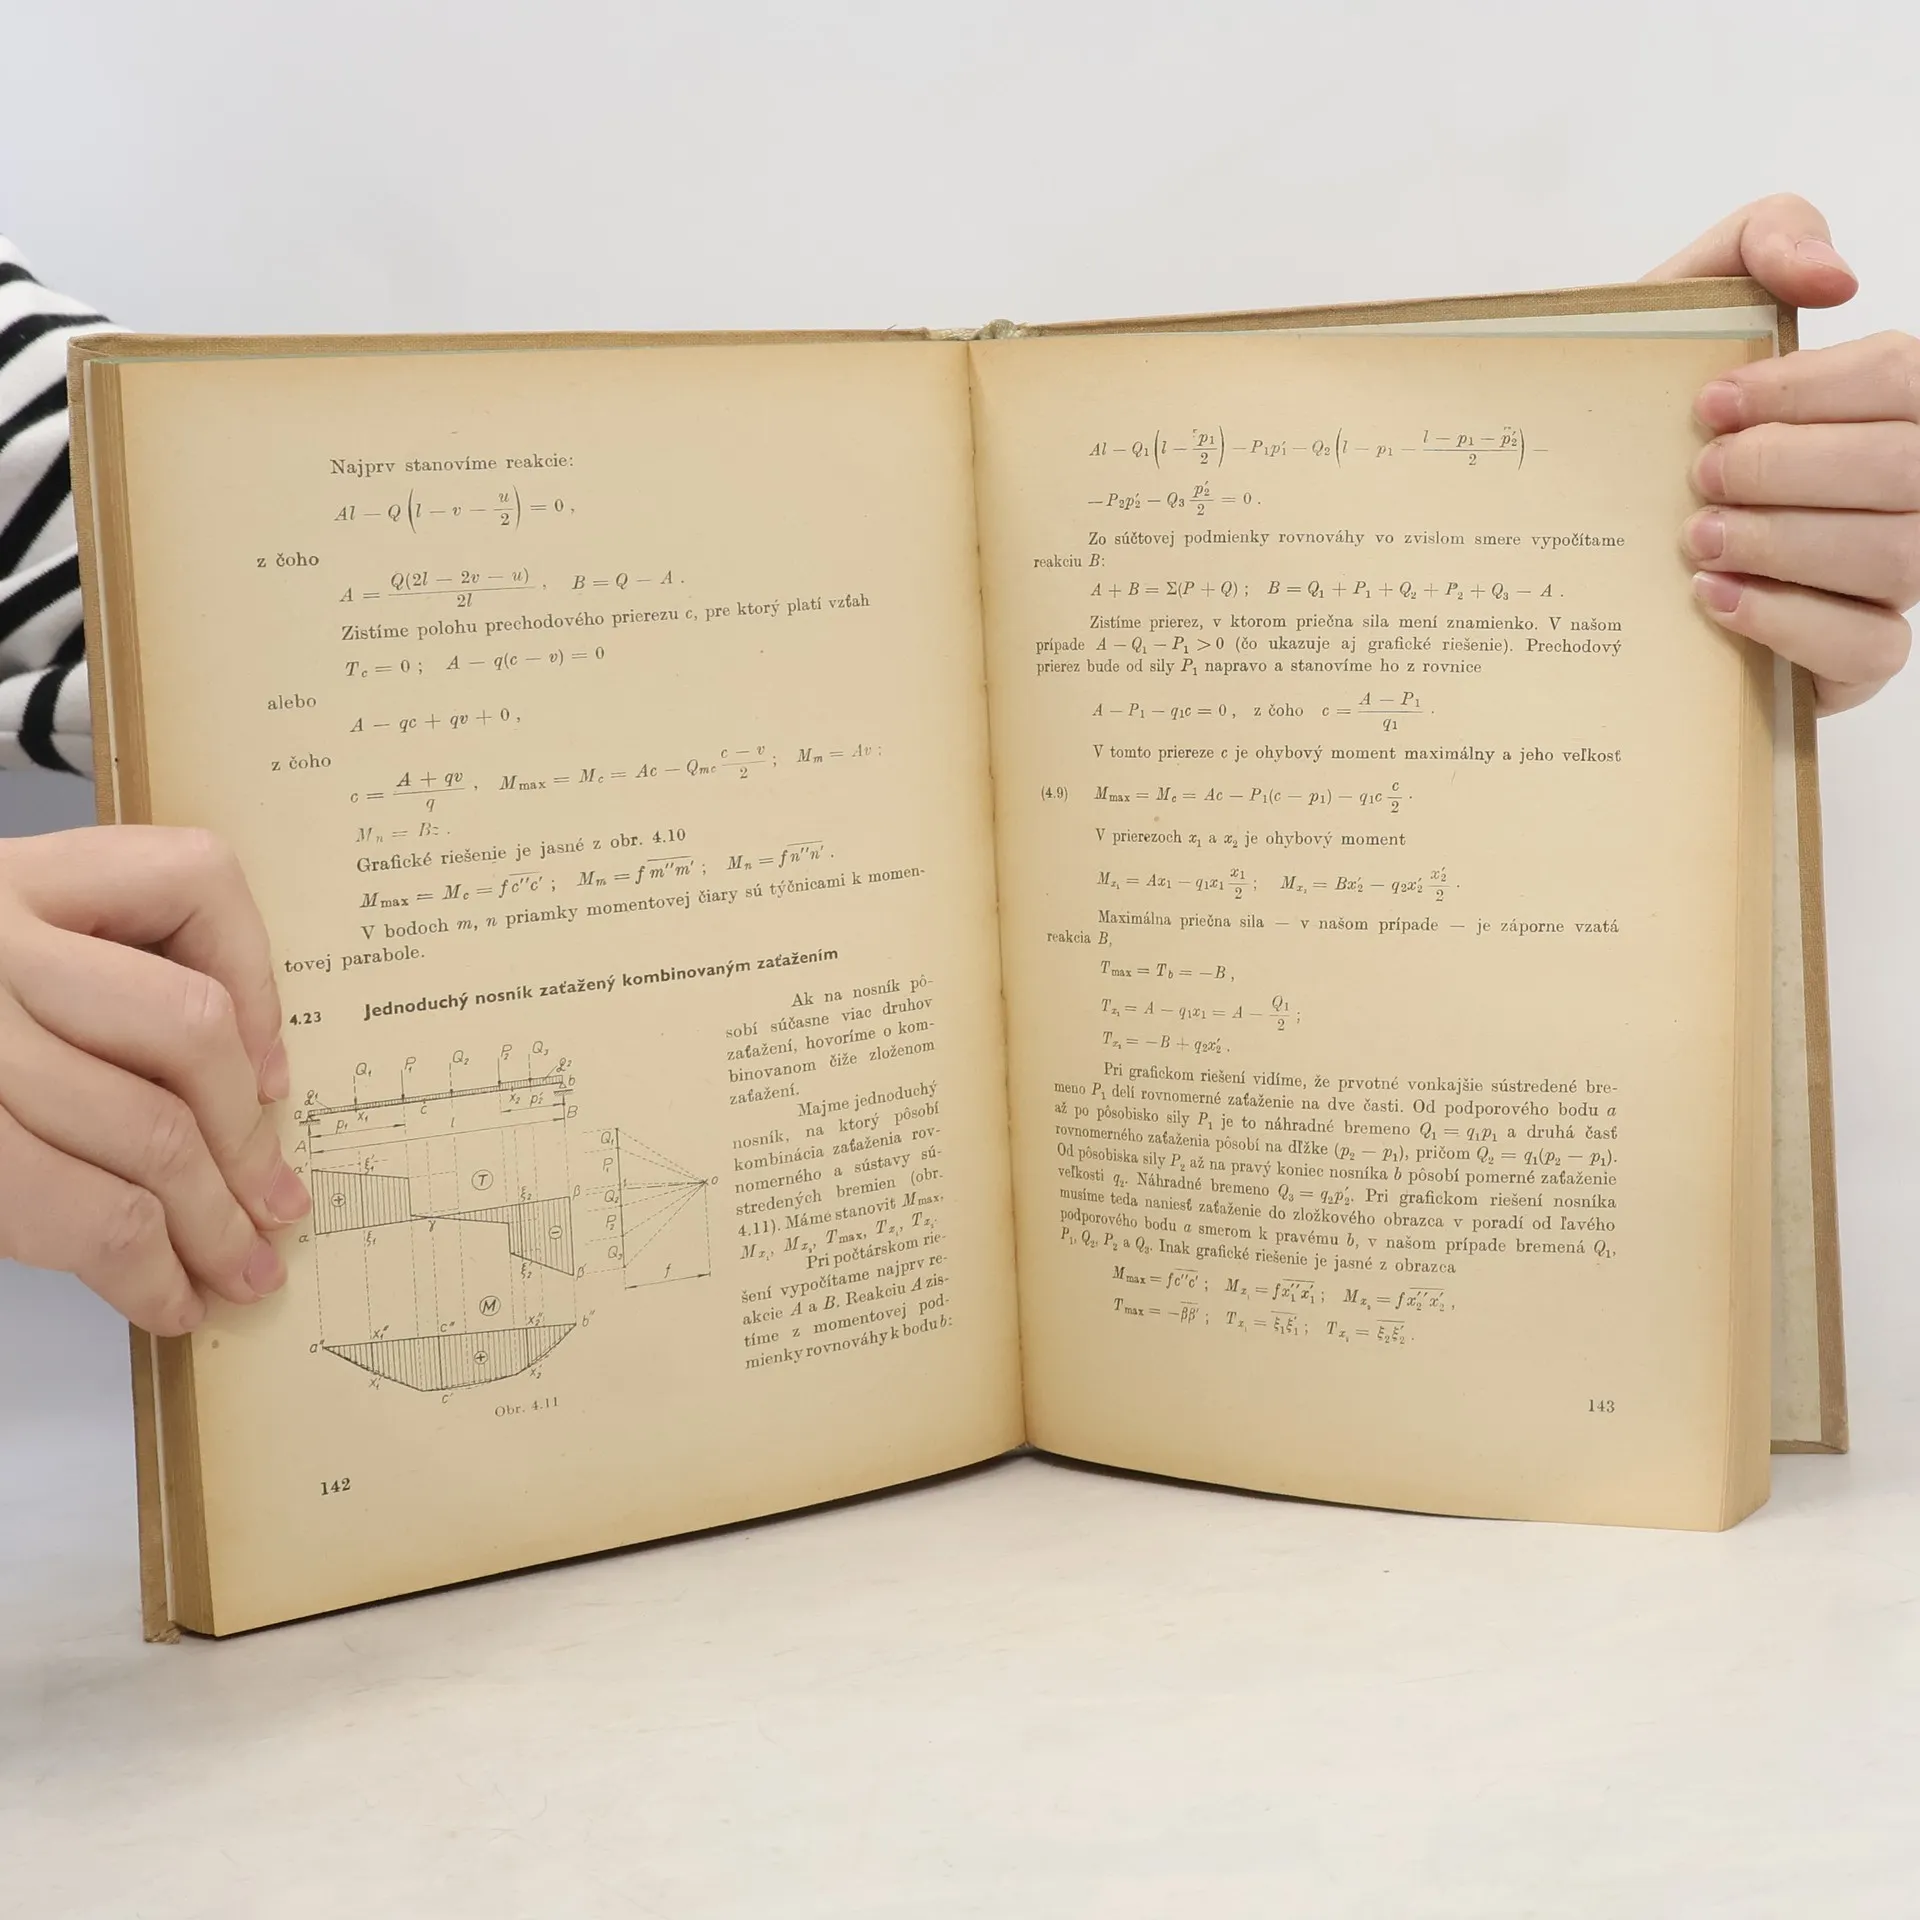 Najprv stanovíme reakcie:
Al − Q (l − v − u/2) = 0 ,
z čoho
A = Q(2l − 2v − u)/2l , B = Q − A .
Zistíme polohu prechodového prierezu c, pre ktorý platí vzťah
T_c = 0 ; A − q(c − v) = 0
alebo
A − qc + qv + 0 ,
z čoho
c = (A + qv)/q , M_max = M_c = Ac − Q_mc (c − v)/2 ; M_m = Av ;
M_n = Bz .
Grafické riešenie je jasné z obr. 4.10
M_max = M_c = f c''c' ; M_m = f m''m' ; M_n = f n''n' .
V bodoch m, n priamky momentovej čiary sú týčnicami k momen-
tovej parabole.
4.23 Jednoduchý nosník zaťažený kombinovaným zaťažením
Ak na nosník pô-
sobí súčasne viac druhov
zaťažení, hovoríme o kom-
binovanom čiže zloženom
zaťažení.
Majme jednoduchý
nosník, na ktorý pôsobí
kombinácia zaťaženia rov-
nomerného a sústavy sú-
stredených bremien (obr.
4.11). Máme stanoviť M_max,
M_x₁, M_x₂, T_max, T_x₁, T_x₂.
Pri počtárskom rie-
šení vypočítame najprv re-
akcie A a B. Reakciu A zis-
tíme z momentovej pod-
mienky rovnováhy k bodu b:
Q₁ P₁ Q₂ P₂ Q₃
q₁ q₂
a x₁ c x₂ p₂' b
p₁ l
A B
α' ξ₁' T ξ₂ β
α ξ₁ γ ξ₂' β'
Q₁
P₁
Q₂
P₂
Q₃
o
f
M
a'' x₁'' c'' x₂'' b''
x₁' c' x₂'
Obr. 4.11
142
Al − Q₁ (l − p₁/2) − P₁p₁' − Q₂ (l − p₁ − (l − p₁ − p₂')/2) −
− P₂p₂' − Q₃ p₂'/2 = 0 .
Zo súčtovej podmienky rovnováhy vo zvislom smere vypočítame
reakciu B:
A + B = Σ(P + Q) ; B = Q₁ + P₁ + Q₂ + P₂ + Q₃ − A .
Zistíme prierez, v ktorom priečna sila mení znamienko. V našom
prípade A − Q₁ − P₁ > 0 (čo ukazuje aj grafické riešenie). Prechodový
prierez bude od sily P₁ napravo a stanovíme ho z rovnice
A − P₁ − q₁c = 0 , z čoho c = (A − P₁)/q₁ .
V tomto priereze c je ohybový moment maximálny a jeho veľkosť
(4.9) M_max = M_c = Ac − P₁(c − p₁) − q₁c c/2 .
V prierezoch x₁ a x₂ je ohybový moment
M_x₁ = Ax₁ − q₁x₁ x₁/2 ; M_x₂ = Bx₂' − q₂x₂' x₂'/2 .
Maximálna priečna sila — v našom prípade — je záporne vzatá
reakcia B,
T_max = T_b = −B ,
T_x₁ = A − q₁x₁ = A − Q₁/2 ;
T_x₂ = −B + q₂x₂' .
Pri grafickom riešení vidíme, že prvotné vonkajšie sústredené bre-
meno P₁ delí rovnomerné zaťaženie na dve časti. Od podporového bodu a
až po pôsobisko sily P₁ je to náhradné bremeno Q₁ = q₁p₁ a druhá časť
rovnomerného zaťaženia pôsobí na dĺžke (p₂ − p₁), pričom Q₂ = q₁(p₂ − p₁).
Od pôsobiska sily P₂ až na pravý koniec nosníka b pôsobí pomerné zaťaženie
veľkosti q₂. Náhradné bremeno Q₃ = q₂p₂'. Pri grafickom riešení nosníka
musíme teda naniesť zaťaženie do zložkového obrazca v poradí od ľavého
podporového bodu a smerom k pravému b, v našom prípade bremená Q₁,
P₁, Q₂, P₂ a Q₃. Inak grafické riešenie je jasné z obrazca
M_max = f c''c' ; M_x₁ = f x₁''x₁' ; M_x₂ = f x₂''x₂' ,
T_max = −ββ' ; T_x₁ = ξ₁ξ₁' ; T_x₂ = ξ₂ξ₂' .
143